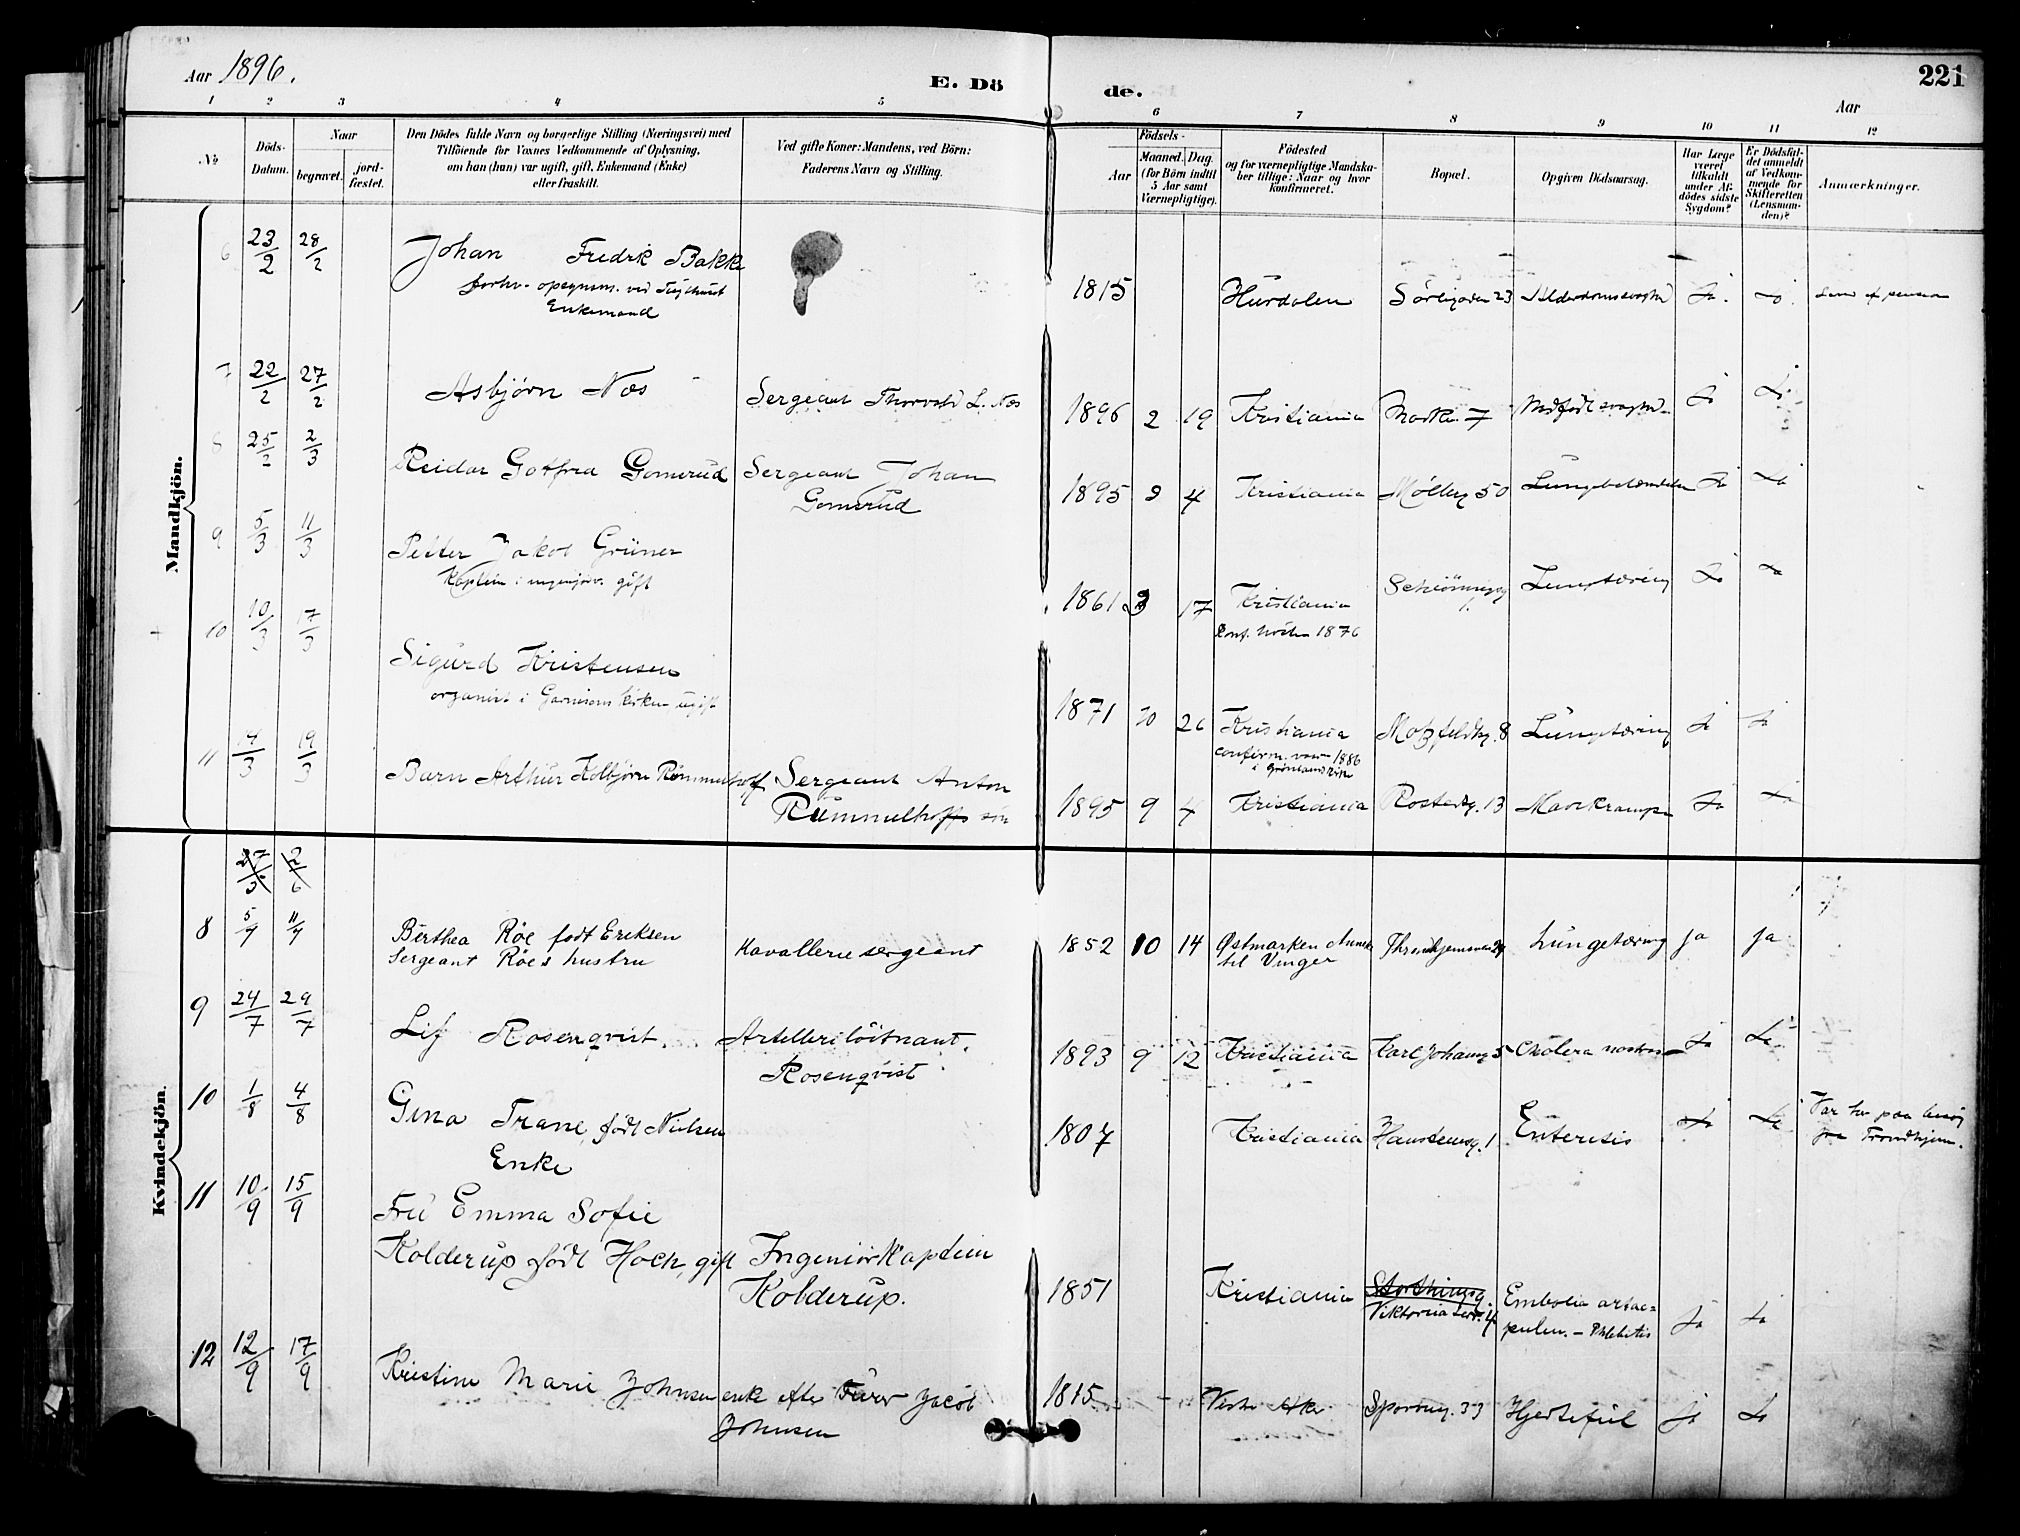 Aar 1896.
E. Dö
de.
221
Aar
1 2 3 4 5 6 7 8 9 10 11 12
No
Döds-
Datum.
Naar
begravet.
jord-
fæstet.
Den Dödes fulde Navn og borgerlige Stilling (Næringsvei) med
Tilföiende for Voxnes Vedkommende af Oplysning,
om han (hun) var ugift, gift, Enkemand (Enke)
eller fraskilt.
Ved gifte Koner: Mandens, ved Börn:
Faderens Navn og Stilling.
Födsels-
Aar
Maaned. Dag.
(for Börn indtil
5 Aar samt
Værnepligtige).
Födested
og for værnepligtige Mandska-
ber tillige: Naar og hvor
konfirmeret.
Bopæl.
Opgiven Dödsaarsag.
Har Læge
været
tilkaldt
under Af-
dödes sidste
Sygdom?
Er Dödsfal-
det anmeldt
af Vedkom-
mende for
Skifteretten
(Lensman-
den)?
Anmærkninger.
Mandkjön.
6 23/2 28/2 Johan Fredrik Bakke
ved
Enkemand
1815 Hurdalen 23 Ja.
7 22/2 27/2 Asbjørn Næs Sergeant Thorvald L. Næs
1896 2 19 Kristiania 7 Ja
8 25/2 2/3 Reidar Gomsrud Sergeant Johan
Gomsrud
1895 9 4 Kristiania Mølleg 50 Ja
9 5/3 11/3 Petter Jakob Grüner
Kaptein i gift
1861 3 17 Kristiania
Konf. høsten 1876
Lungetæring Ja
10 10/3 17/3 Sigurd Kristensen
organist i Garnisons kirken ugift
1871 10 26 Kristiania
1886
i
Motzfeldtsg. 8 Lungetæring Ja Ja
11 19/3 Barn Arthur Kolbjørn Rømmelhoff Sergeant Anton
Rummelhoffs
1895 9 4 Kristiania Rostedsg. 13 Mavekrampe Ja
Kvindekjön.
8 5/7 11/7 Berthea Røe født Eriksen
Sergeant Røes hustru
Kavallerisergeant
1852 10 14 Østmarken
til Vinger
Lungetæring ja ja
9 24/7 29/7 Lif Rosenqvist. Artilleriløitnant.
Rosenqvist
1893 9 12 Kristiania Karl Johansg 5 Cholera nostras Ja Ja
10 1/8 4/8 Gina Trane, født Nielsen
Enke
1807 Kristiania 1 Enteritis Ja Ja
Var her paa besøg
fra Trondhjem.
11 10/9 15/9 Fru Emma Sofie
Kolderup født Hoch, gift Ingeniørkaptein
Kolderup.
1851 Kristiania Storthingsg.
Viktoria 4
Embolia
pulm. – Phlebitis
Ja Ja
12 12/9 17/9 Kristine Marie Johnsen enke efter Furer Jacob
Johnsen
1815 Vestre Aker 33 Hjertefeil ja Ja